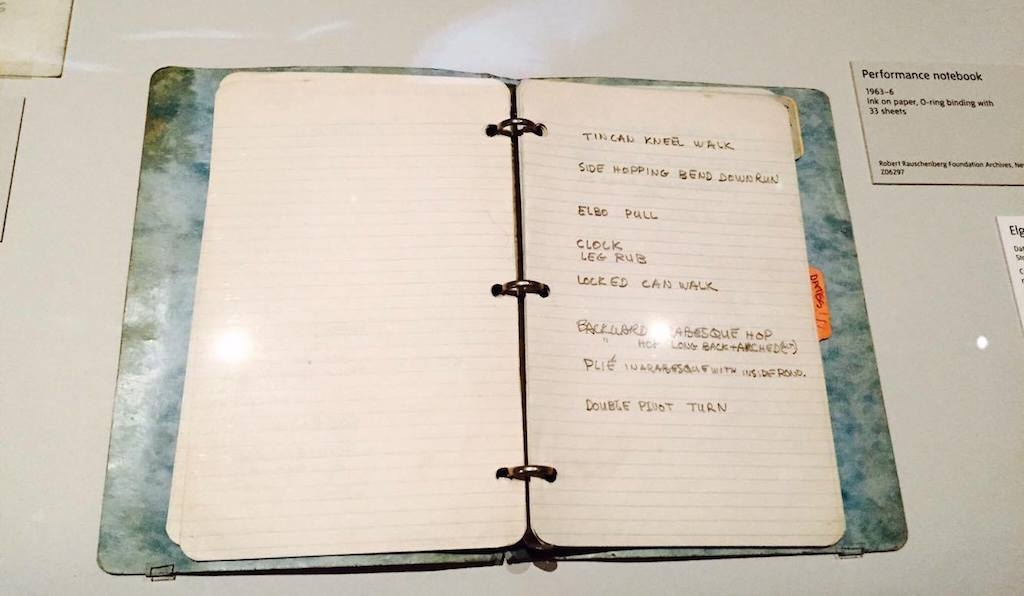 TIN CAN KNEEL WALK
SIDE HOPPING BEND DOWN RUN
ELBO PULL
CLOCK
LEG RUB
LOCKED CAN WALK
BACKWARD ARABESQUE HOP
" HOP LONG BACK + ARCHED
PLIÉ IN ARABESQUE WITH INSIDE ROND.
DOUBLE PIVOT TURN
Performance notebook
1963–6
Ink on paper, O-ring binding with
33 sheets
Robert Rauschenberg Foundation Archives, Ne
Z06297
Elg